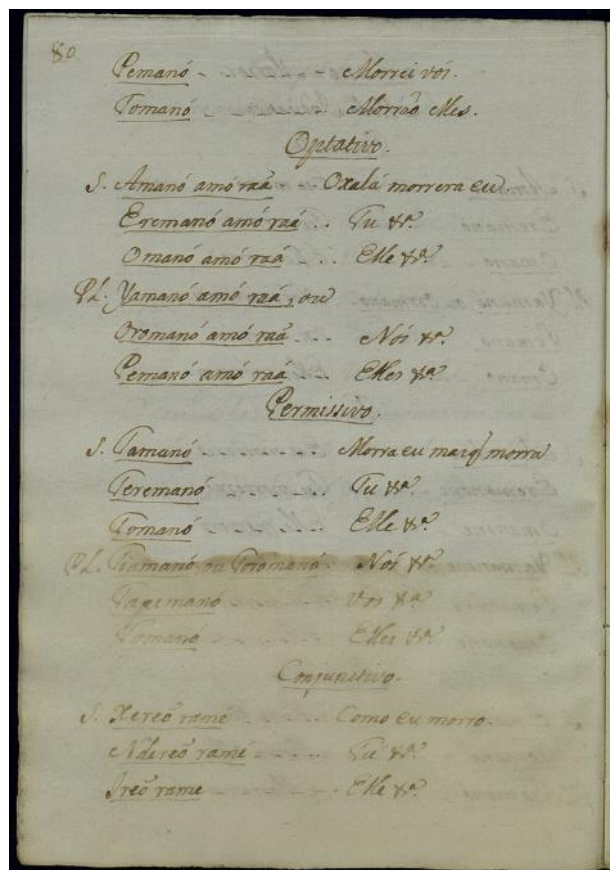 80
Pemanó - Morrei vós.
Tomanó Morrão elles.
Optativo.
S. Amanó amó raá - Oxalá morrera eu.
Eremanó amó raá .. Tu &ª.
Omanó amó raá . . Elle &ª.
Pl. Yamanó amó raá, ou
Oromanó amó raá .. Nós &ª.
Pemanó amó raá ... Elles &ª.
Permissivo.
S. Tamanó Morra eu mas q̃ morra
Teremanó ..... Tu &ª.
Tomanó Elle &ª.
Pl. Tiamanó, ou Toromanó. Nós &ª.
Tapemanó - .. . Vós &ª
Tomanó ..... Elles &ª.
Conjunctivo.
S. Xereõ ramé . .... Como eu morro.
Ndereõ ramé - .... Tu &ª.
Ireõ rame ..... Elle &ª.